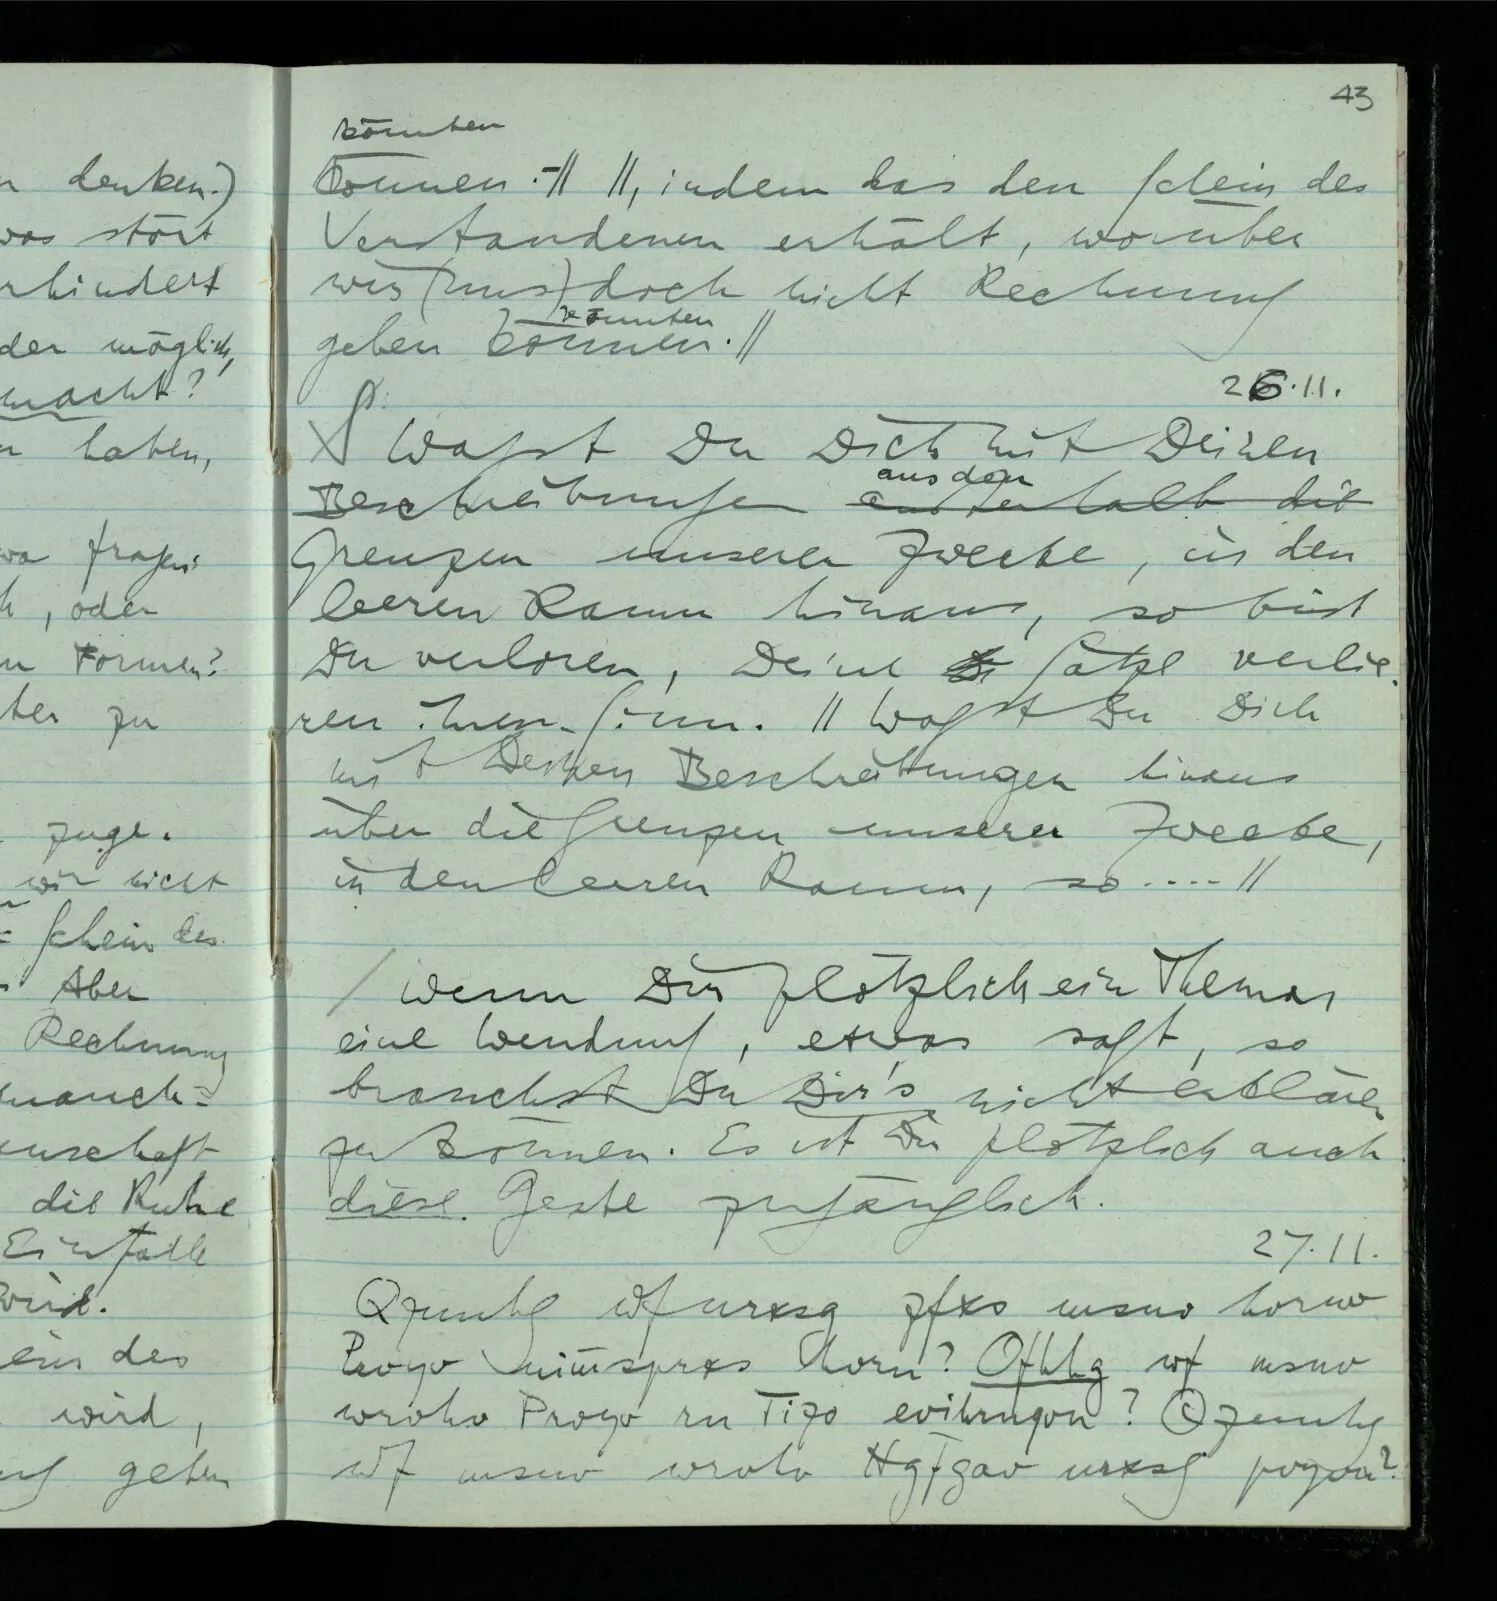 n denken.)
was stört
rhindert
der möglich,
macht?
n haben,
wa fragen:
h, oder
n Formen?
ter zu
zuge.
wir nicht
= Schein des
Aber
Rechnung
manch=
enschaft
die Ruhe
Einfälle
wird.
ein des
wird,
ng geben
43
könnten
können.–// //, indem das den Schein des
Verstandenen erhält, worüber
wir (uns) doch nicht Rechnung
könnten
geben können. //
26.11.
∫ Wagst Du Dich mit Deinen
aus den
Beschreibungen außerhalb die
Grenzen unserer Zwecke, in den
leeren Raum hinaus, so bist
Du verloren, Deine Sätze verlie-
ren ihren Sinn. // Wagst Du Dich
mit Deinen Beschreibungen hinaus
über die Grenzen unserer Zwecke,
in den leeren Raum, so .... //
/ Wenn Dir plötzlich ein Thema,
eine Wendung, etwas sagt, so
brauchst Du Dir's nicht erklären
zu können. Es ist Dir plötzlich auch
diese Geste zugänglich.
27.11.
Qznnhg wf nrxsg zfxs msnv hvrnv
Prvyv uim̈sprxs hvrn? Ofhhg wf msnv
wrvhv Prvyv rn Tizo evihrnqvn? Qznnhg
wf msnv wrvhv Hgf̈gav nrxsg pvyvn?